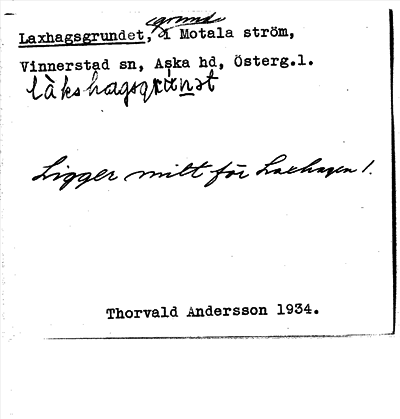 grund
Laxhagsgrundet, i Motala ström,
Vinnerstad sn, Aska hd, Österg.l.
làkshagsgrúnət
Ligger mitt för Laxhagen 1.
Thorvald Andersson 1934.